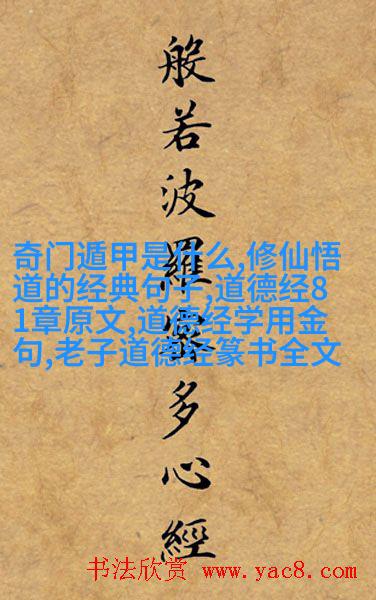 般若波羅蜜多心經
奇门遁甲是什么,修仙悟
道的经典句子,道德经8
1章原文,道德经学用金
句,老子道德经篆书全文
书法欣赏 www.yac8.com